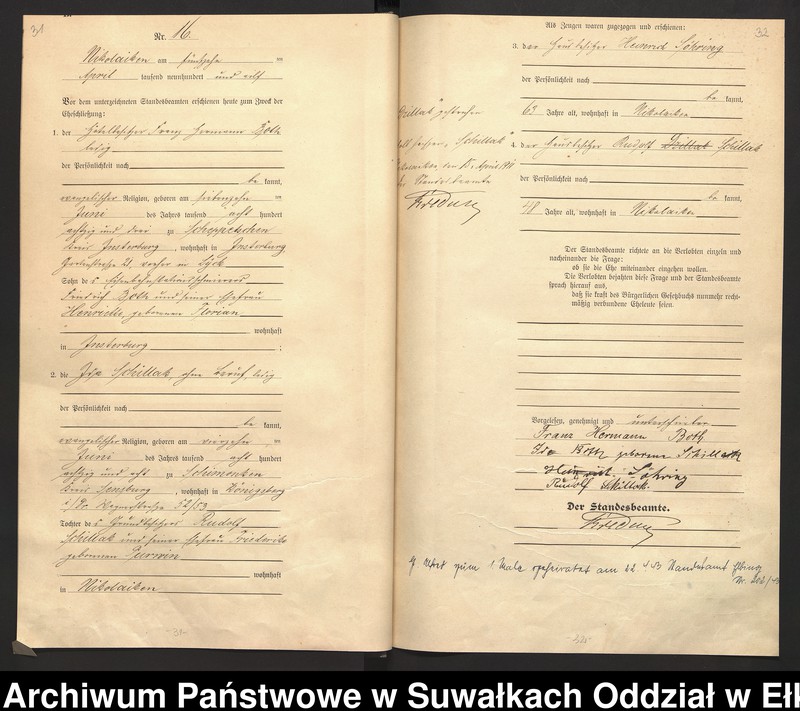 31
Nr. 16.
Nikolaiken am fünfzehn ten
April tausend neunhundert und elf
Vor dem unterzeichneten Standesbeamten erschienen heute zum Zweck der
Eheschließung:
1. der Hotelbesitzer Franz Hermann Both
ledig
der Persönlichkeit nach
be kannt,
evangelischer Religion, geboren am siebenzehn ten
Juni des Jahres tausend acht hundert
achtzig und drei zu
Kreis Insterburg, wohnhaft in Insterburg,
21, vorher in Lyck
Sohn des
Friedrich Both und seiner Ehefrau
Henriette, geborenen Florian,
wohnhaft
in Insterburg ;
2. die Ida Schillak, ohne Beruf, ledig
der Persönlichkeit nach
be kannt,
evangelischer Religion, geboren am vierzehn ten
Juni des Jahres tausend acht hundert
achtzig und acht zu Schimonken
Kreis Sensburg, wohnhaft in Königsberg
i/Pr. Wagnerstraße 52/53
Tochter des Grundbesitzers Rudolf
Schillak und seiner Ehefrau Friederike
geborenen
wohnhaft
in Nikolaiken
31
32
Als Zeugen waren zugezogen und erschienen:
3. der Hausbesitzer Heinrich Söhring
der Persönlichkeit nach
be kannt,
63 Jahre alt, wohnhaft in Nikolaiken
4. der Hausbesitzer Rudolf Schillak
der Persönlichkeit nach
be kannt,
48 Jahre alt, wohnhaft in Nikolaiken
gestrichen
soll heißen "Schillak"
Nikolaiken, den 15. April 1911
Der Standesbeamte
Der Standesbeamte richtete an die Verlobten einzeln und
nacheinander die Frage:
ob sie die Ehe miteinander eingehen wollen.
Die Verlobten bejahten diese Frage und der Standesbeamte
sprach hierauf aus,
daß sie kraft des Bürgerlichen Gesetzbuchs nunmehr recht-
mäßig verbundene Eheleute seien.
Vorgelesen, genehmigt und unterschrieben
Franz Hermann Both
Ida Both geborene Schillak
Heinrich Söhring
Rudolf Skillak.
Der Standesbeamte.
zum 1 Male geheiratet am 22. 4. 43 Standesamt Elbing
Nr.
32
Archiwum Państwowe w Suwałkach Oddział w Ełk